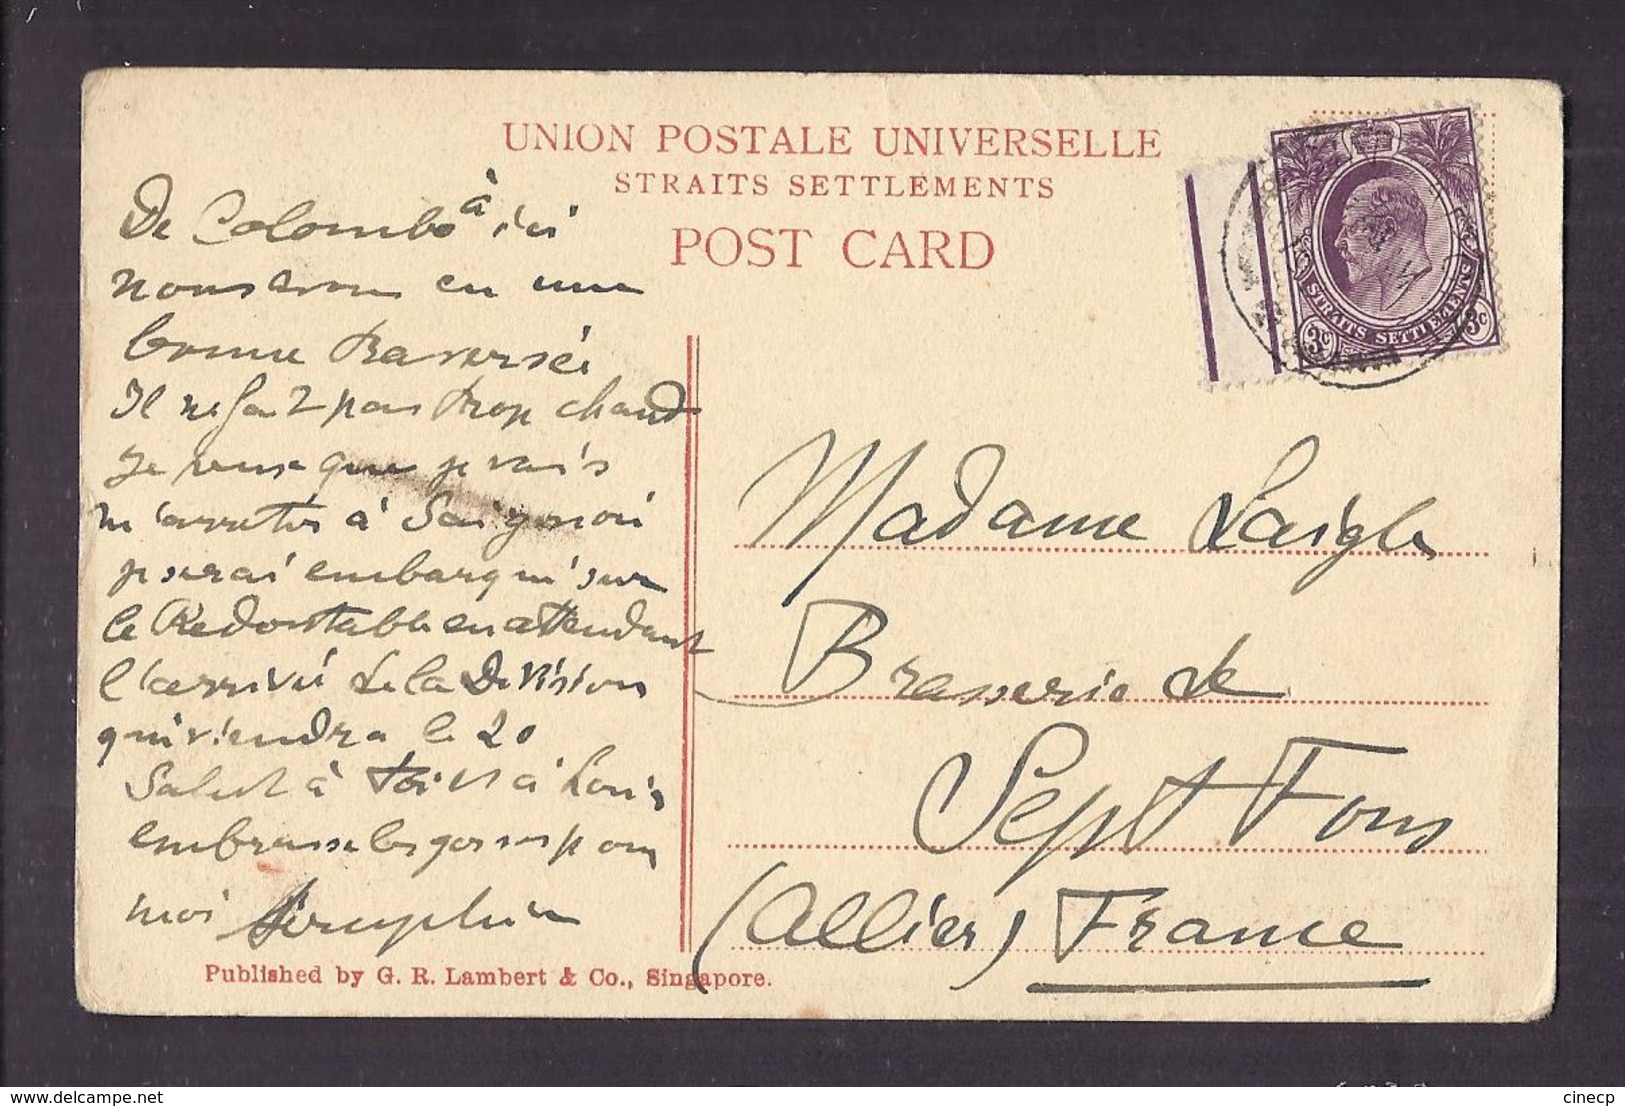 UNION POSTALE UNIVERSELLE
STRAITS SETTLEMENTS
POST CARD
STRAITS SETTLEMENTS
3c 3c
De Colombo à ici
nous avons eu une
bonne traversée
Il ne fait pas trop chaud
Je pense que je vais
m'arreter à Saigon où
je serai embarqué sur
le Redoutable en attendant
l'arrivée de la Division
qui viendra le 20
Salut à toi et à Louis
embrasse les gosses pour
moi Seraphin
Madame Laigle
Brasserie de
Sept Fons
(Allier) France
Published by G. R. Lambert & Co., Singapore.
delcampe.net
cinecp